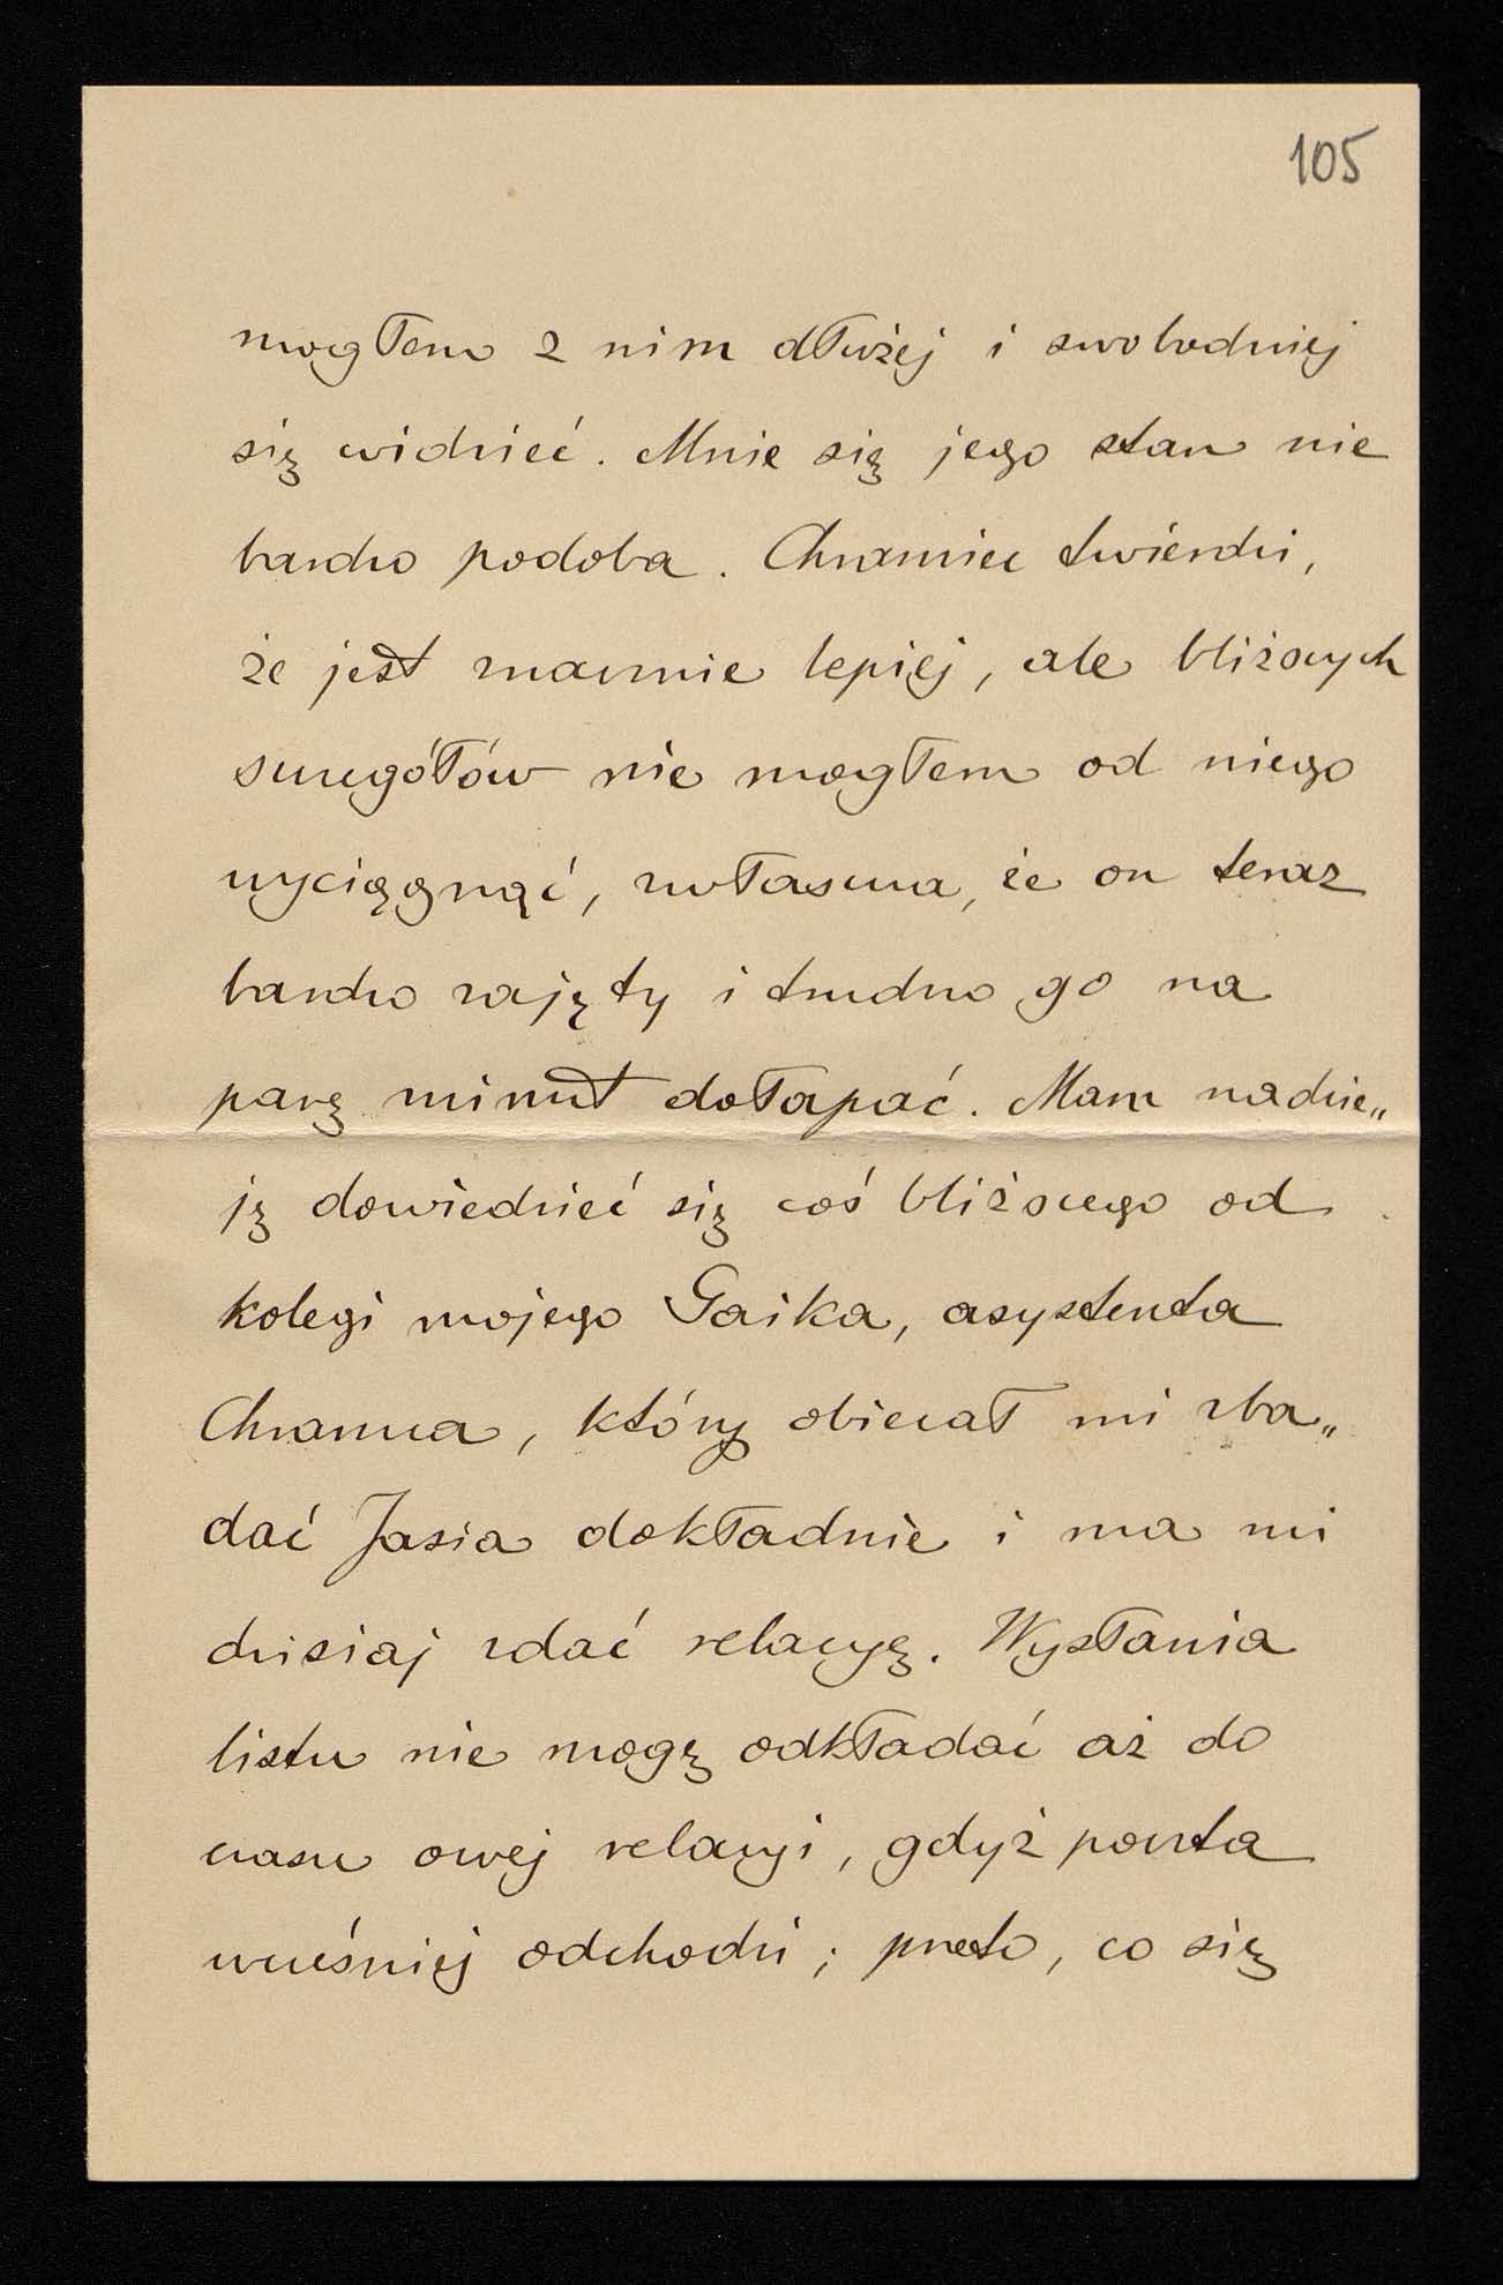 105
mogłem z nim dłużej i swobodniej
się widzieć. Mnie się jego stan nie
bardzo podoba. Chramiec twierdzi,
że jest znacznie lepiej, ale bliższych
szczegółów nie mogłem od niego
wyciągnąć, zwłaszcza, że on teraz
bardzo zajęty i trudno go na
parę minut dołapać. Mam nadzie„
ję dowiedzieć się coś bliższego od
kolegi mojego Gaika, asystenta
Chramca, który obiecał mi zba„
dać Jasia dokładnie i ma mi
dzisiaj zdać relacyę. Wysłania
listu nie mogę odkładać aż do
czasu owej relacyi, gdyż poczta
wcześniej odchodzi; przeto, co się